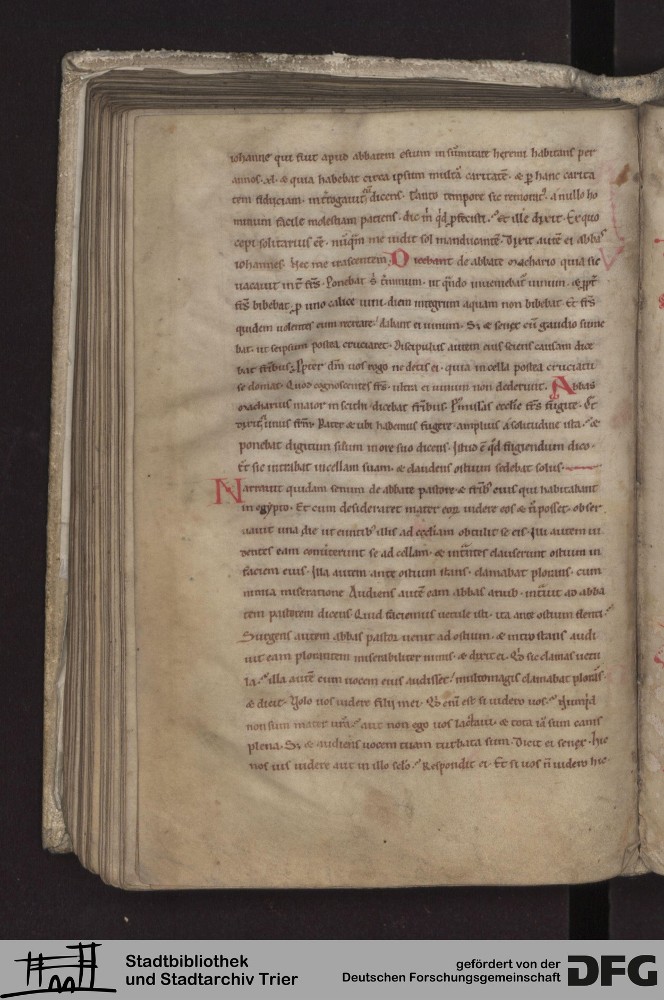 iohanne qui fuit apud abbatem esium in sūmitate heremi habitans per
annos .xl. & quia habebat circa ipsum multā caritatē. & ꝑ hanc carita
tem fiduciam. int̄rogauit eū dicens. Tanto tempore sic remotus. a nullo ho
minum facile molestiam patiens. dic m̄ qd ꝑfecisti. et ille dixit. Ex quo
cepi solitarius eē. nūqm̄ me uidit sol manducantē. Dixit autē ei abbas
iohannes. Nec me irascentem. Dicebant de abbate machario quia sic
uacauit int̄ frs̄. Ponebat s̄ t̄minum. ut qn̄do inueniebat uinum. & ꝓpt̄
frs̄ bibebat. ꝑ uno calice uini. diem integrum aquam non bibebat. Et frs̄
quidem uolentes eum recreare. dabant ei uinum. S; & senex cū gaudio sume
bat. ut seipsum postea cruciaret. Discipulus autem eius sciens causam dice
bat frībus. Ppter dm̄ uos rogo ne detis ei. quia in cella postea cruciatu
se domat. Quod cognoscentes frs̄. ultra ei uinum non dederunt. Abbas
macharius maior in scithi. dicebat frībus. Pꝰ missas ecclīe frs̄ fugite. Et
dixit ei unus frm̄. Pater & ubi habemus fugere. amplius a solitudine ista. &
ponebat digitum suum in ore suo dicens. Istud ē qd fugiendum dico.
Et sic intrabat in cellam suam. & claudens ostium sedebat solus.
Narrauit quidam senum de abbate pastore & frīb; eius qui habitabant
in egypto. Et cum desideraret mater eoꝝ uidere eos & n̄ posset. obser
uauit una die ut euntib; illis ad ecclīam obtulit se eis. Illi autem ui
dentes eam conuerterunt se ad cellam. & int̄ntes clauserunt ostium in
faciem eius. Illa autem ante ostium stans. clamabat plorans. cum
nimia miseratione. Audiens autē eam abbas anub. int̄uit ad abba
tem pastorem dicens. Quid faciemus uetule isti. ita ante ostium flenti.
Surgens autem abbas pastor uenit ad ostium. & intro stans audi
uit eam plorantem miserabiliter nimis. & dixit ei. Qd sic clamas uetu
la. Illa autē cum uocem eius audisset. multomagis clamabat plorās.
& dicit. Uolo uos uidere filii mei. Qd enī est si uidero uos. Nūnqd
non sum mater urā. aut non ego uos lactaui. & tota iā sum canis
plena. S; & audiens uocem tuam turbata sum. Dicit ei senex. hic
nos uis uidere aut in illo sclo. Respondit ei. Et si uos n̄ uidero hic
Stadtbibliothek
und Stadtarchiv Trier
gefördert von der
Deutschen Forschungsgemeinschaft
DFG